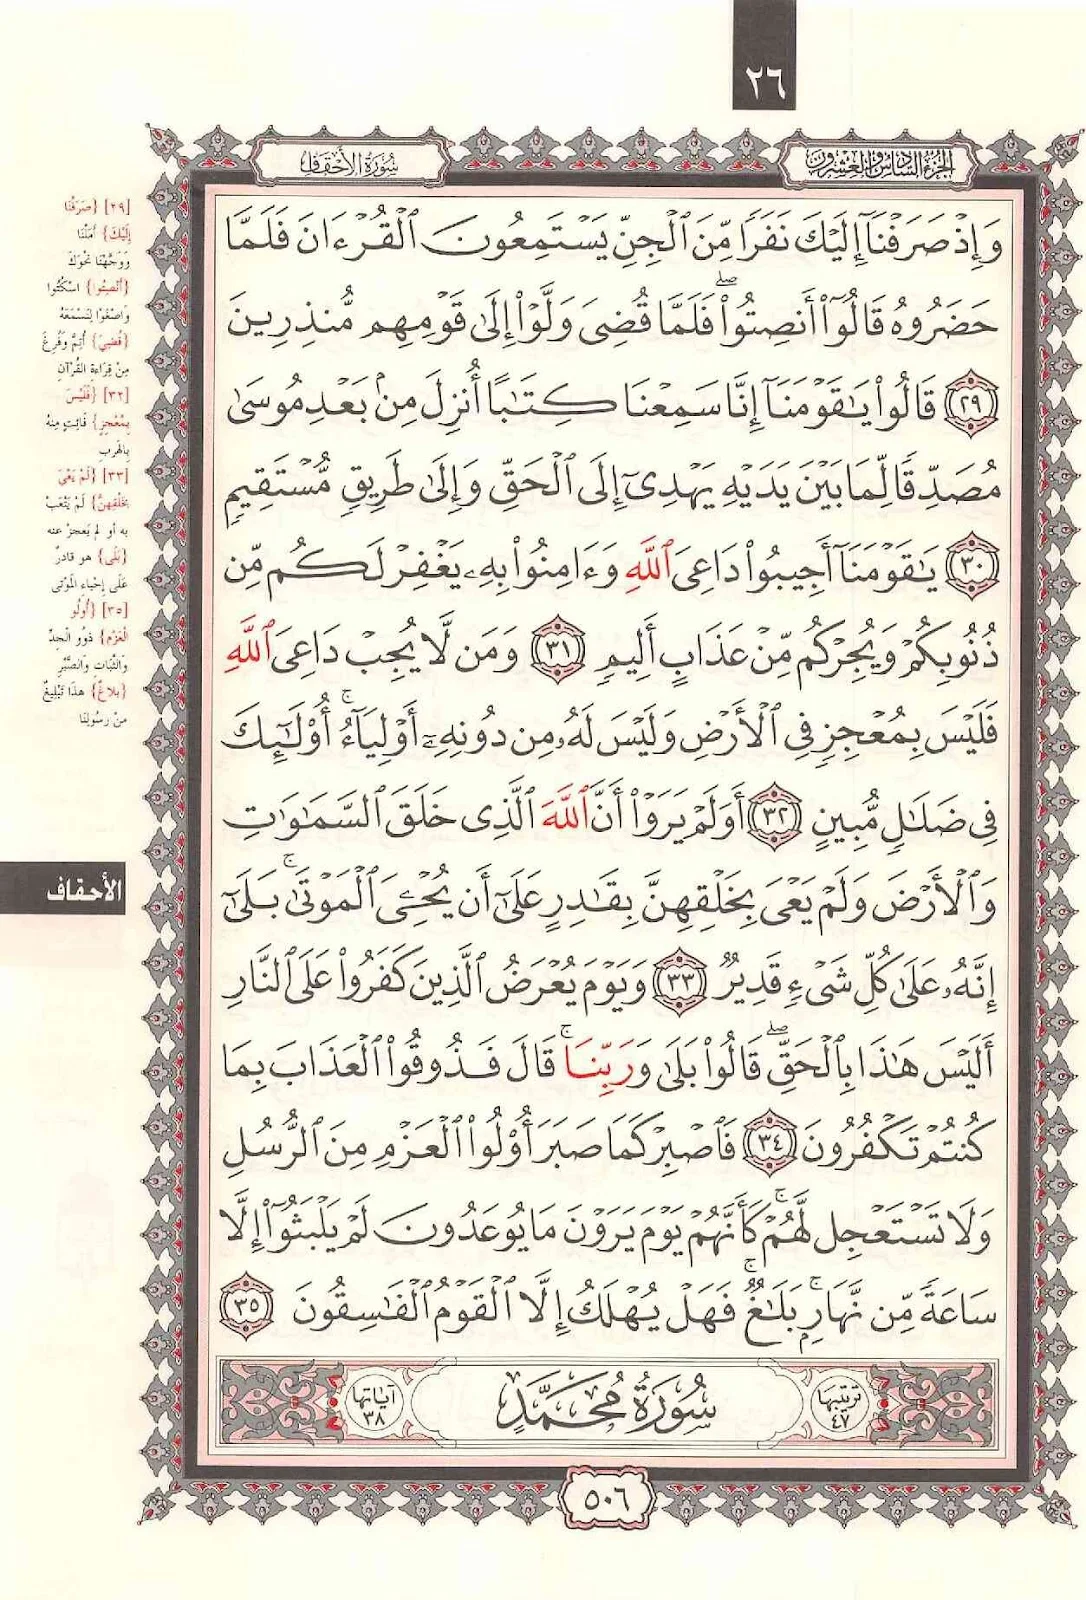 ٢٦
الجزء السادس والعشرون
سُورَةُ الأَحْقَافِ
وَإِذْ صَرَفْنَآ إِلَيْكَ نَفَرًا مِّنَ ٱلْجِنِّ يَسْتَمِعُونَ ٱلْقُرْءَانَ فَلَمَّا
حَضَرُوهُ قَالُوٓا۟ أَنصِتُوا۟ ۖ فَلَمَّا قُضِىَ وَلَّوْا۟ إِلَىٰ قَوْمِهِم مُّنذِرِينَ
٢٩ قَالُوا۟ يَٰقَوْمَنَآ إِنَّا سَمِعْنَا كِتَٰبًا أُنزِلَ مِنۢ بَعْدِ مُوسَىٰ
مُصَدِّقًا لِّمَا بَيْنَ يَدَيْهِ يَهْدِىٓ إِلَى ٱلْحَقِّ وَإِلَىٰ طَرِيقٍ مُّسْتَقِيمٍ
٣٠ يَٰقَوْمَنَآ أَجِيبُوا۟ دَاعِىَ ٱللَّهِ وَءَامِنُوا۟ بِهِۦ يَغْفِرْ لَكُم مِّن
ذُنُوبِكُمْ وَيُجِرْكُم مِّنْ عَذَابٍ أَلِيمٍ ٣١ وَمَن لَّا يُجِبْ دَاعِىَ ٱللَّهِ
فَلَيْسَ بِمُعْجِزٍ فِى ٱلْأَرْضِ وَلَيْسَ لَهُۥ مِن دُونِهِۦٓ أَوْلِيَآءُ ۚ أُو۟لَٰٓئِكَ
فِى ضَلَٰلٍ مُّبِينٍ ٣٢ أَوَلَمْ يَرَوْا۟ أَنَّ ٱللَّهَ ٱلَّذِى خَلَقَ ٱلسَّمَٰوَٰتِ
وَٱلْأَرْضَ وَلَمْ يَعْىَ بِخَلْقِهِنَّ بِقَٰدِرٍ عَلَىٰٓ أَن يُحْـِۧىَ ٱلْمَوْتَىٰ ۚ بَلَىٰٓ
إِنَّهُۥ عَلَىٰ كُلِّ شَىْءٍ قَدِيرٌ ٣٣ وَيَوْمَ يُعْرَضُ ٱلَّذِينَ كَفَرُوا۟ عَلَى ٱلنَّارِ
أَلَيْسَ هَٰذَا بِٱلْحَقِّ ۖ قَالُوا۟ بَلَىٰ وَرَبِّنَا ۚ قَالَ فَذُوقُوا۟ ٱلْعَذَابَ بِمَا
كُنتُمْ تَكْفُرُونَ ٣٤ فَٱصْبِرْ كَمَا صَبَرَ أُو۟لُوا۟ ٱلْعَزْمِ مِنَ ٱلرُّسُلِ
وَلَا تَسْتَعْجِل لَّهُمْ ۚ كَأَنَّهُمْ يَوْمَ يَرَوْنَ مَا يُوعَدُونَ لَمْ يَلْبَثُوٓا۟ إِلَّا
سَاعَةً مِّن نَّهَارٍۭ ۚ بَلَٰغٌ ۚ فَهَلْ يُهْلَكُ إِلَّا ٱلْقَوْمُ ٱلْفَٰسِقُونَ ٣٥
ترتيبها ٤٧
سُورَةُ مُحَمَّدٍ
آياتها ٣٨
٥٠٦
[٢٩] {صَرَفْنَا
إِلَيْكَ} أَمَلْنَا
وَوَجَّهْنَا نَحْوَكَ
{أَنْصِتُوا} اسْكُتُوا
وَاصْغَوْا لِنَسْمَعَهُ
{قُضِيَ} أُتِمَّ وَفُرِغَ
مِنْ قِرَاءَةِ الْقُرْآنِ
[٣٢] {فَلَيْسَ
بِمُعْجِزٍ} فَائِتٍ مِنْهُ
بِالْهَرَبِ
[٣٣] {لَمْ يَعْيَ
بِخَلْقِهِنَّ} لَمْ يَتْعَبْ
به أو لم يَعْجزْ عنه
{بَلَى} هو قادرٌ
عَلَى إِحْيَاءِ الْمَوْتَى
[٣٥] {أُولُو
الْعَزْمِ} ذَوُو الْجِدِّ
وَالثَّبَاتِ وَالصَّبْرِ
{بَلَاغٌ} هَذَا تَبْلِيغٌ
مِنْ رَسُولِنَا
الأحقاف